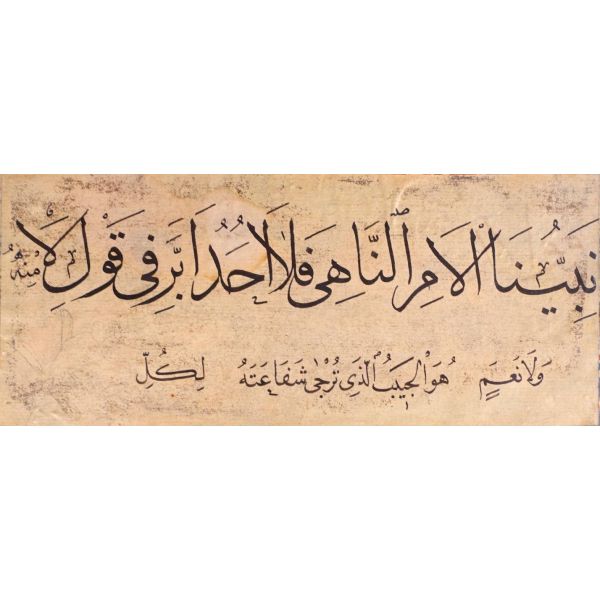 نَبِيُّنَا الْآمِرُ النَّاهِي فَلَا أَحَدٌ أَبَرَّ فِي قَوْلِ لَا مِنْهُ
وَلَا نَعَمٍ هُوَ الْحَبِيبُ الَّذِي تُرْجَى شَفَاعَتُهُ لِكُلِّ